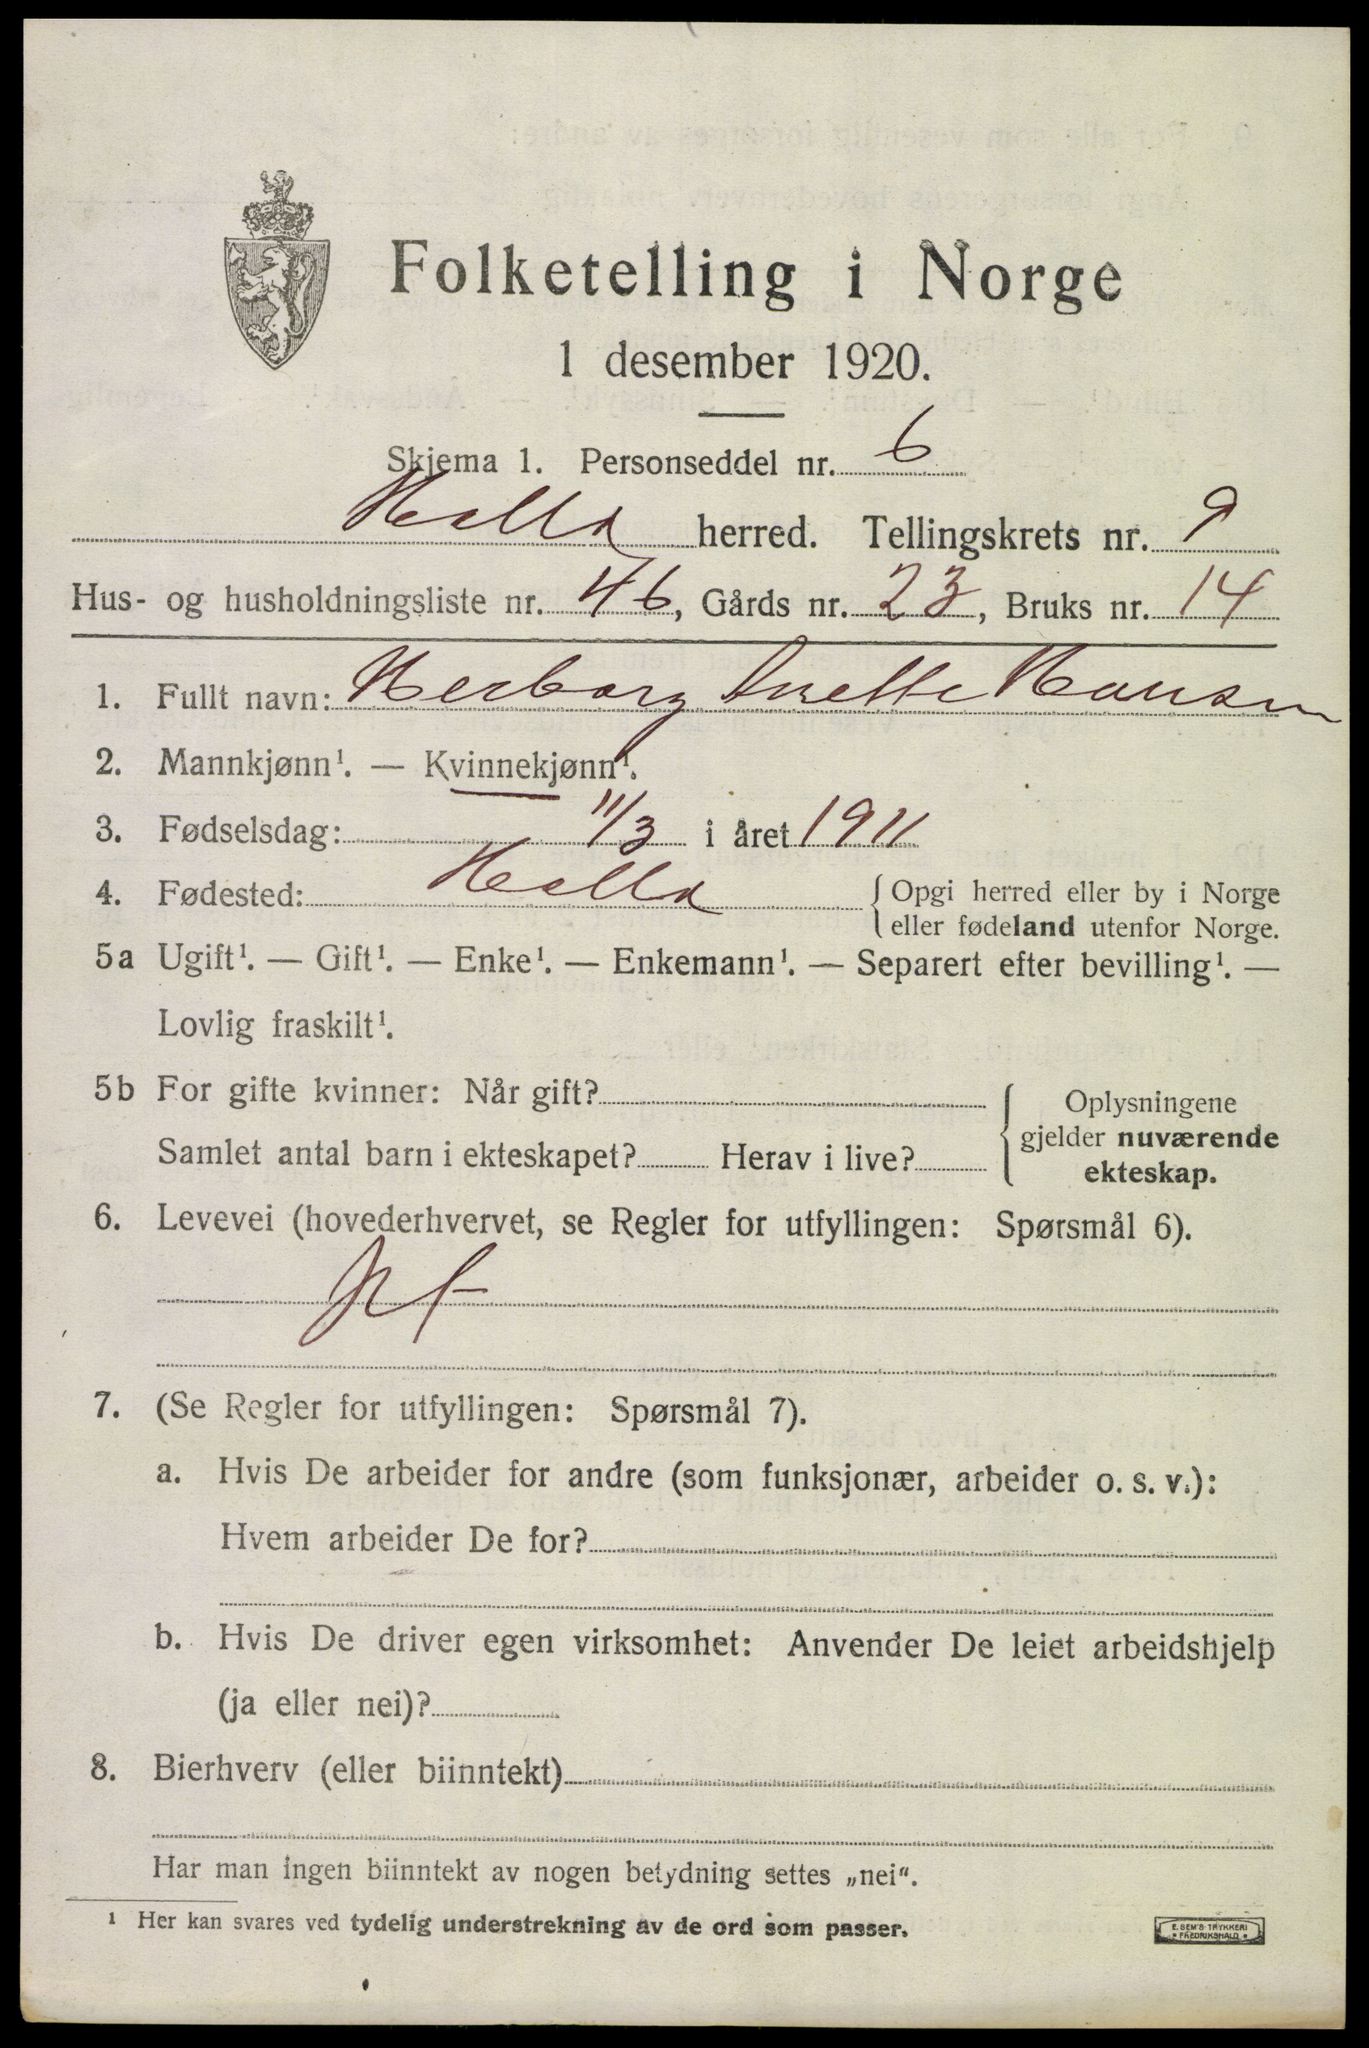 Folketelling i Norge
1 desember 1920.
Skjema 1. Personseddel nr. 6
Holla herred. Tellingskrets nr. 9
Hus- og husholdningsliste nr. 46, Gårds nr. 23, Bruks nr. 14
1. Fullt navn: Herborg Anette Hansen
2. Mannkjønn¹. — Kvinnekjønn¹.
3. Fødselsdag: 11/3 i året 1911
4. Fødested: Holla { Opgi herred eller by i Norge
eller fødeland utenfor Norge.
5a Ugift¹. — Gift¹. — Enke¹. — Enkemann¹. — Separert efter bevilling¹. —
Lovlig fraskilt¹.
5b For gifte kvinner: Når gift? { Oplysningene
gjelder nuværende
ekteskap.
Samlet antal barn i ekteskapet? Herav i live?
6. Levevei (hovederhvervet, se Regler for utfyllingen: Spørsmål 6).
7. (Se Regler for utfyllingen: Spørsmål 7).
a. Hvis De arbeider for andre (som funksjonær, arbeider o. s. v.):
Hvem arbeider De for?
b. Hvis De driver egen virksomhet: Anvender De leiet arbeidshjelp
(ja eller nei)?
8. Bierhverv (eller biinntekt)
Har man ingen biinntekt av nogen betydning settes „nei“.
¹ Her kan svares ved tydelig understrekning av de ord som passer.
E. SEM'S TRYKKERI
• FREDRIKSHALD •